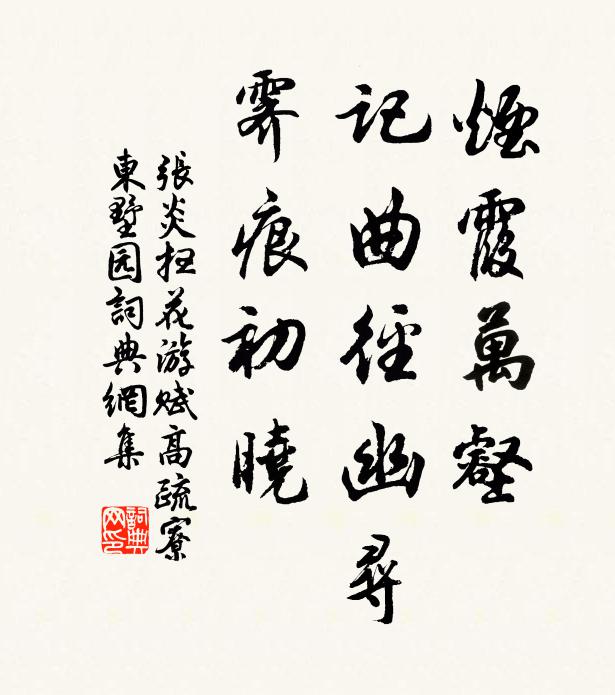 煙霞萬壑
記曲徑幽尋
霽痕初曉
張炎扭花游賦高疏寮
東墅园詞典網集
詞典网印